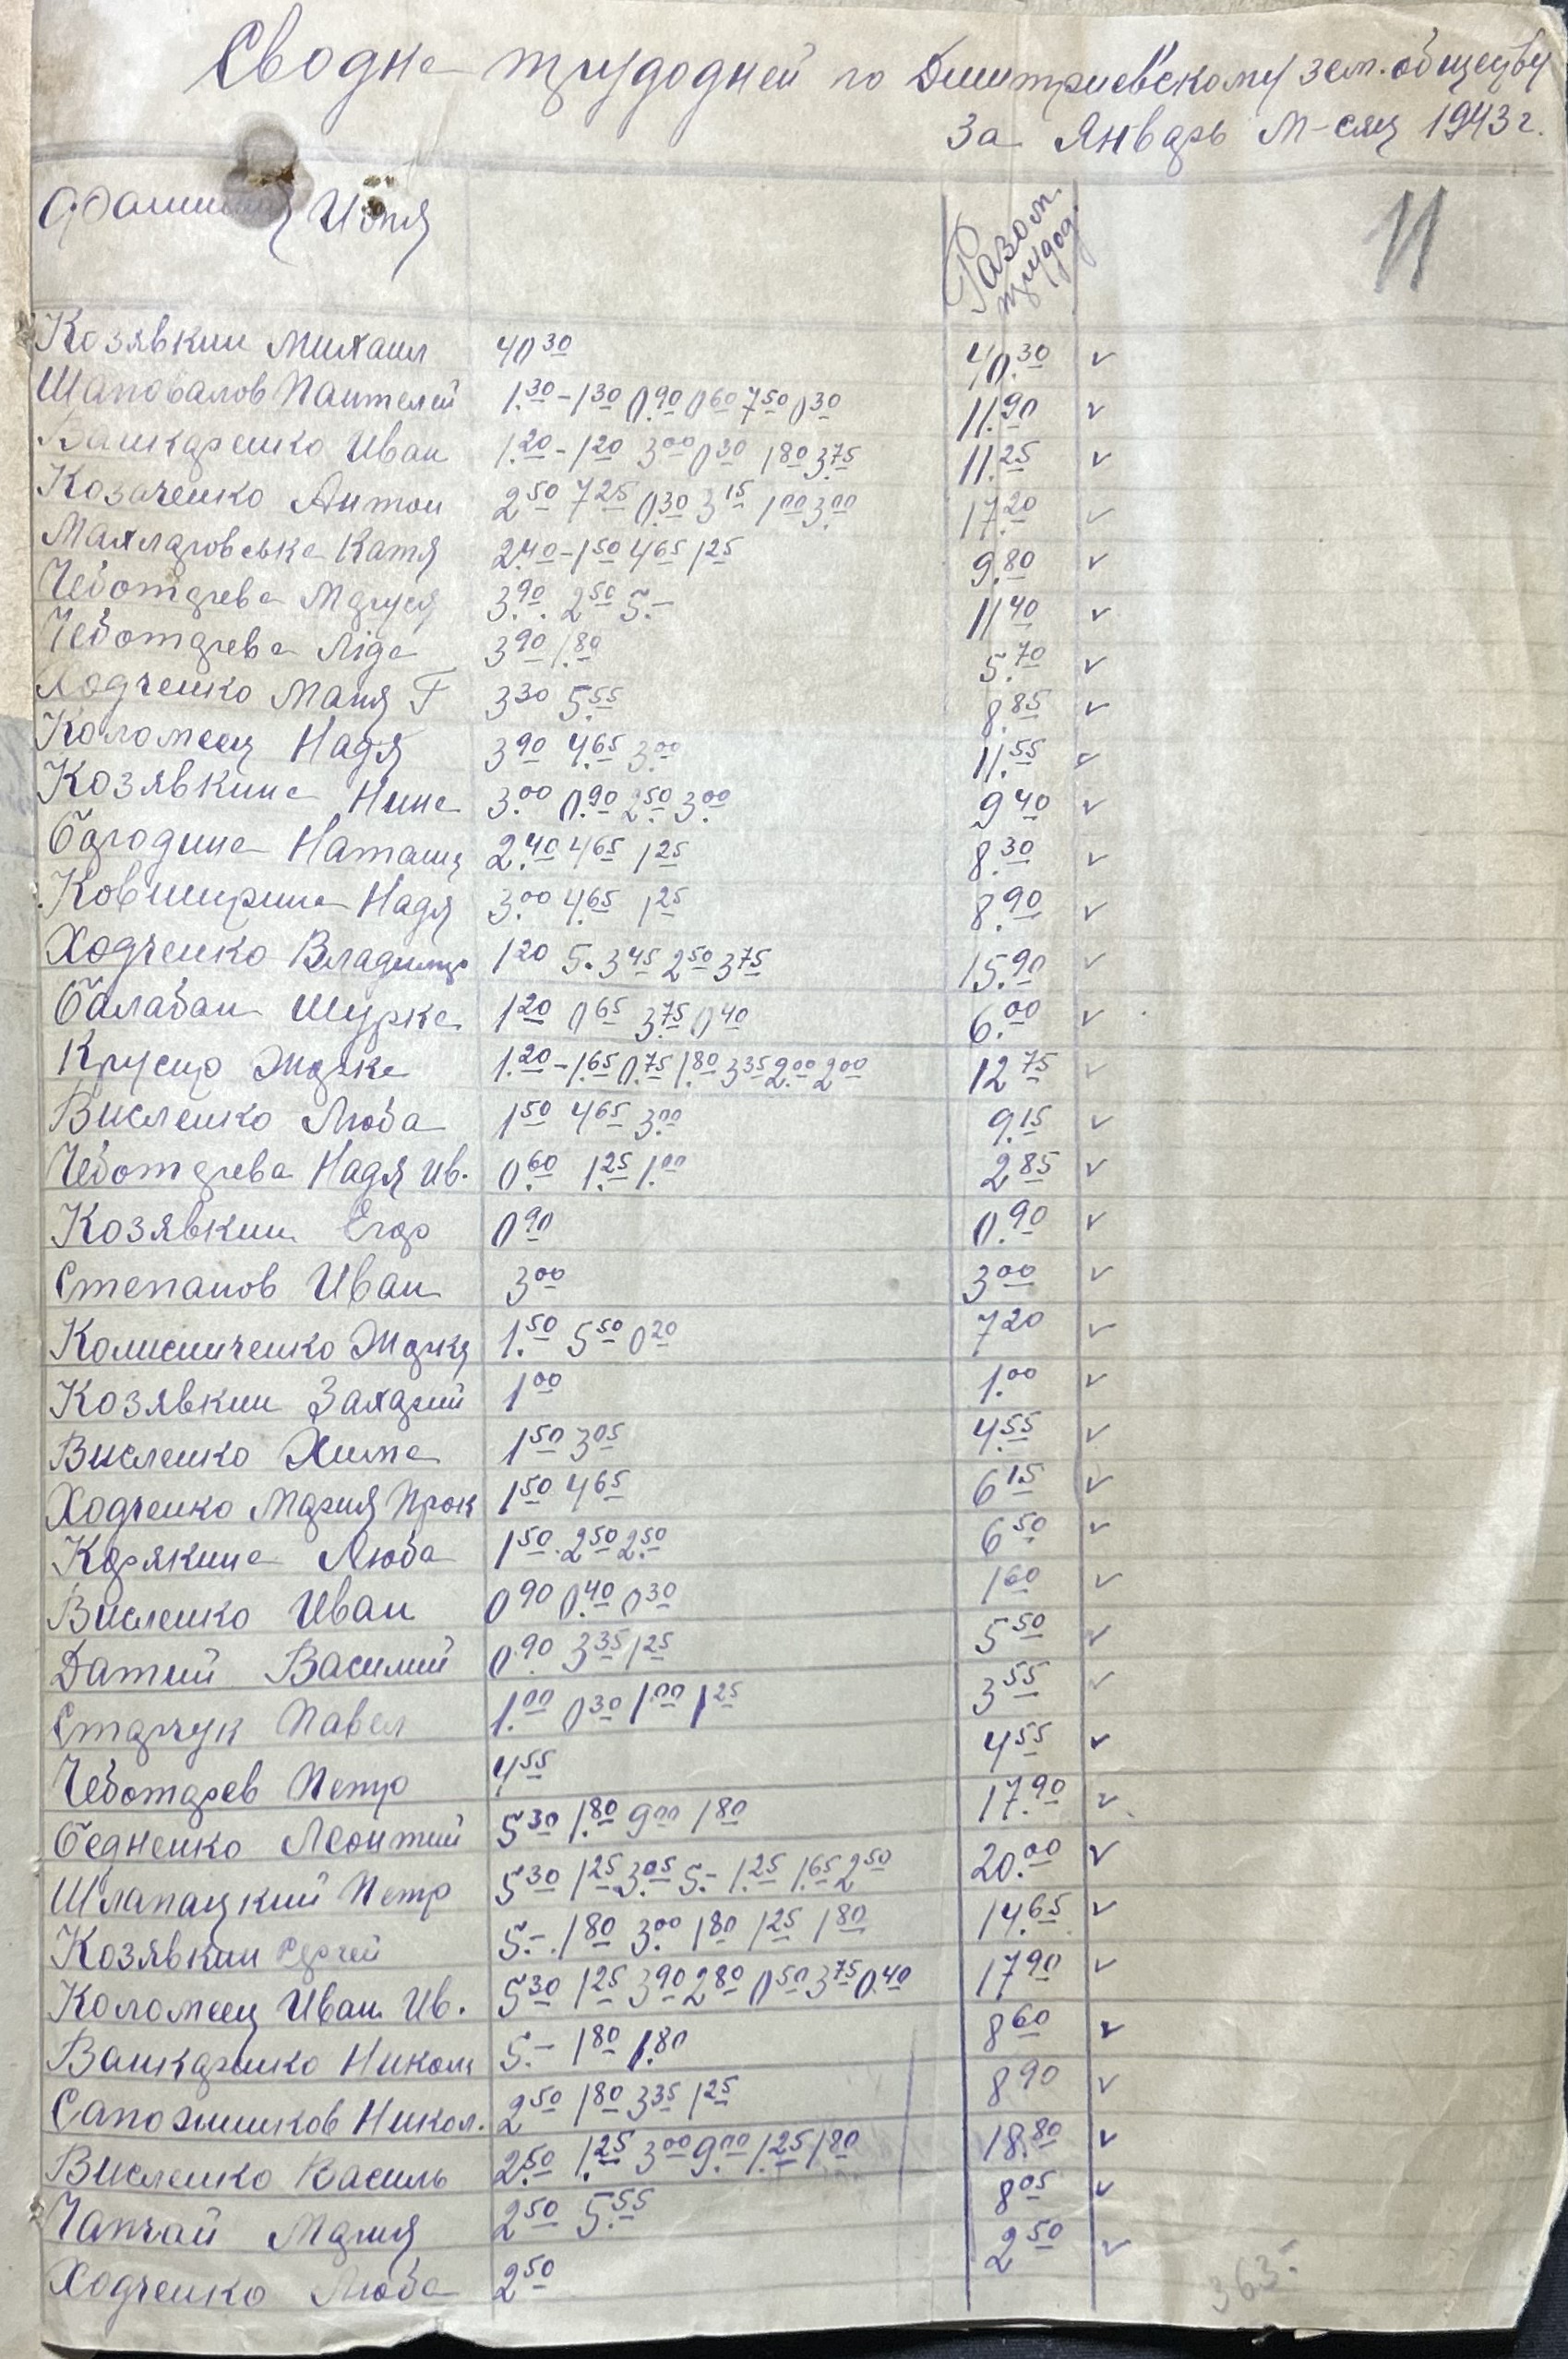 Сводка трудодней по Дмитриевскому зем. обществу
За Январь М-сяц 1943 г.
Фамилия Имя
Разом трудод.
11
Козявкин Михаил 40 30 40.30 v
Шаповалов Пантелей 1.30 - 1 30 0.90 0 60 7 50 0 30 11.90 v
Вашкаренко Иван 1.20 - 1 20 3 00 0 30 1 80 3.75 11.25 v
Козаченко Антон 2 50 7 25 0.30 3 15 1 00 3.00 17.20 v
Махларовська Катя 2.40 - 1 50 4 65 1 25 9.80 v
Чеботарева Маруся 3.90 2 50 5.- 11 40 v
Чеботарева Ліда 3 90 1.80 5.70 v
Ходченко Маня Г 3 30 5.55 8.85 v
Коломеец Надя 3 90 4.65 3.00 11.55 v
Козявкина Нина 3.00 0.90 2.50 3.00 9 40 v
Бородина Наташа 2.40 4 65 1 25 8.30 v
Ковширина Надя 3.00 4.65 1 25 8.90 v
Ходченко Владимир 1 20 5. 3 45 2 50 3 75 15.90 v
Балабан Шурка 1 20 0 65 3.75 0 40 6.00 v
Крусир Жорка 1.20 - 1.65 0.75 1.80 3 35 2.00 2 00 12 75 v
Висленко Люба 1 50 4 65 3.00 9.15 v
Чеботарева Надя Ив. 0.60 1.25 1.00 2 85 v
Козявкин Егор 0 90 0.90 v
Степанов Иван 3 00 3 00 v
Колисниченко Жорка 1.50 5 50 0 20 7 20 v
Козявкин Захарий 1 00 1.00 v
Висленко Хима 1 50 3 05 4.55 v
Ходченко Мария Прок 1 50 4 65 6 15 v
Корякина Люба 1 50 2 50 2.50 6 50 v
Висленко Иван 0 90 0.40 0 30 1 60 v
Датий Василий 0.90 3 35 1 25 5 50 v
Старчук Павел 1.00 0 30 1 00 1 25 3 55 v
Чеботарев Петр 4 55 4 55 v
Бедненко Леонтий 5 30 1.80 9 00 1 80 17.90 v
Шлапацкий Петр 5 30 1 25 3.05 5.- 1.25 1.65 2 50 20.00 v
Козявкин Сергей 5.- 1 80 3.00 1 80 1 25 1 80 14.65 v
Коломеец Иван Ив. 5 30 1 25 3 90 2 80 0 50 3 75 0.40 17 90 v
Вашкаренко Никола 5.- 1 80 1.80 8 60 v
Сапожников Никол. 2 50 1 80 3 35 1 25 8 90 v
Висленко Василь 2.50 1.25 3 00 9.00 1.25 1 80 18.80 v
Чапчай Мария 2 50 5.55 8 05 v
Ходченко Люба 2 50 2 50 v
363.-